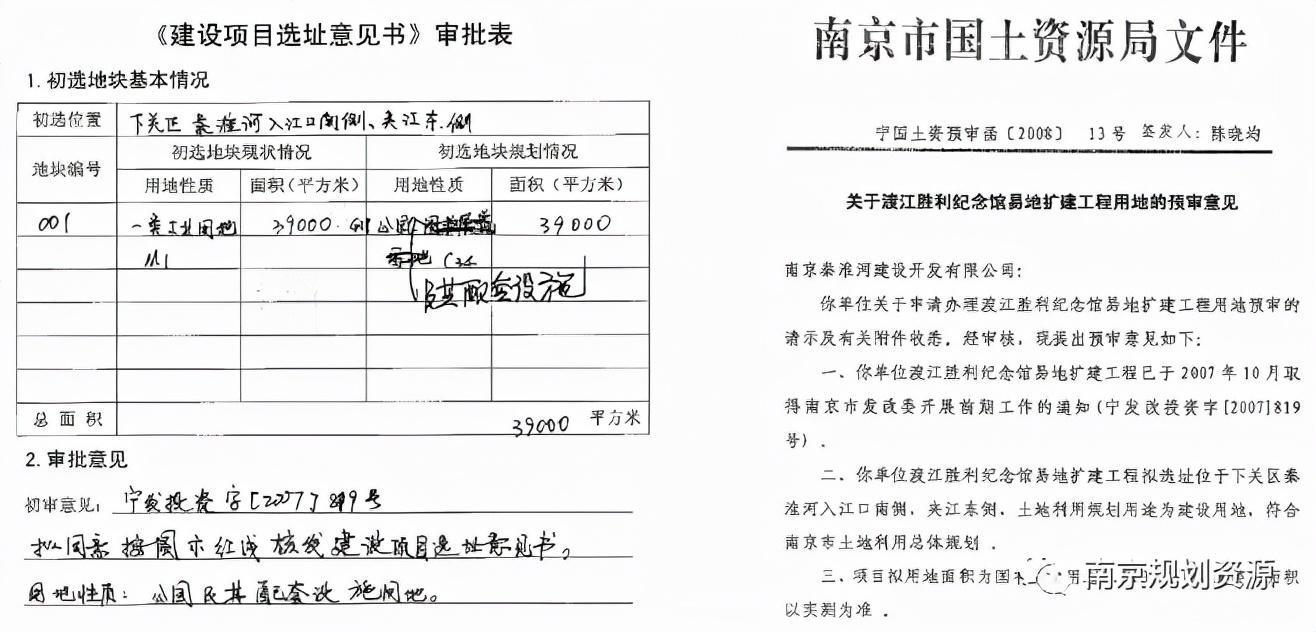 《建设项目选址意见书》审批表
1. 初选地块基本情况
初选位置 下关区秦淮河入江口南侧、夹江东侧
地块编号 初选地块现状情况 初选地块规划情况
用地性质 面积(平方米) 用地性质 面积(平方米)
001 一类工业用地 39000. G11 公园 39000
M1 C34
及其配套设施
总面积 39000 平方米
2. 审批意见
初审意见: 宁发投资字[2007]819号
拟同意按图示红线核发建设项目选址意见书。
用地性质:公园及其配套设施用地。
南京市国土资源局文件
宁国土资预审函〔2008〕 13号 签发人:陈晓均
关于渡江胜利纪念馆易地扩建工程用地的预审意见
南京秦淮河建设开发有限公司:
你单位关于申请办理渡江胜利纪念馆易地扩建工程用地预审的
请示及有关附件收悉。经审核,现提出预审意见如下:
一、你单位渡江胜利纪念馆易地扩建工程已于2007年10月取
得南京市发改委开展前期工作的通知(宁发改投资字[2007]819
号)。
二、你单位渡江胜利纪念馆易地扩建工程拟选址位于下关区秦
淮河入江口南侧,夹江东侧,土地利用规划用途为建设用地,符合
南京市土地利用总体规划。
三、项目拟用地面积为国 用 积
以实测为准。
南京规划资源